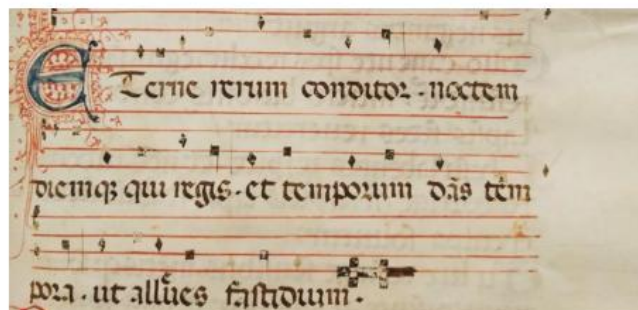 ETerne rerum conditor · noctem
diemqȝ qui regis · et temporum dãs tẽm
pora · ut alleves fastidium ·